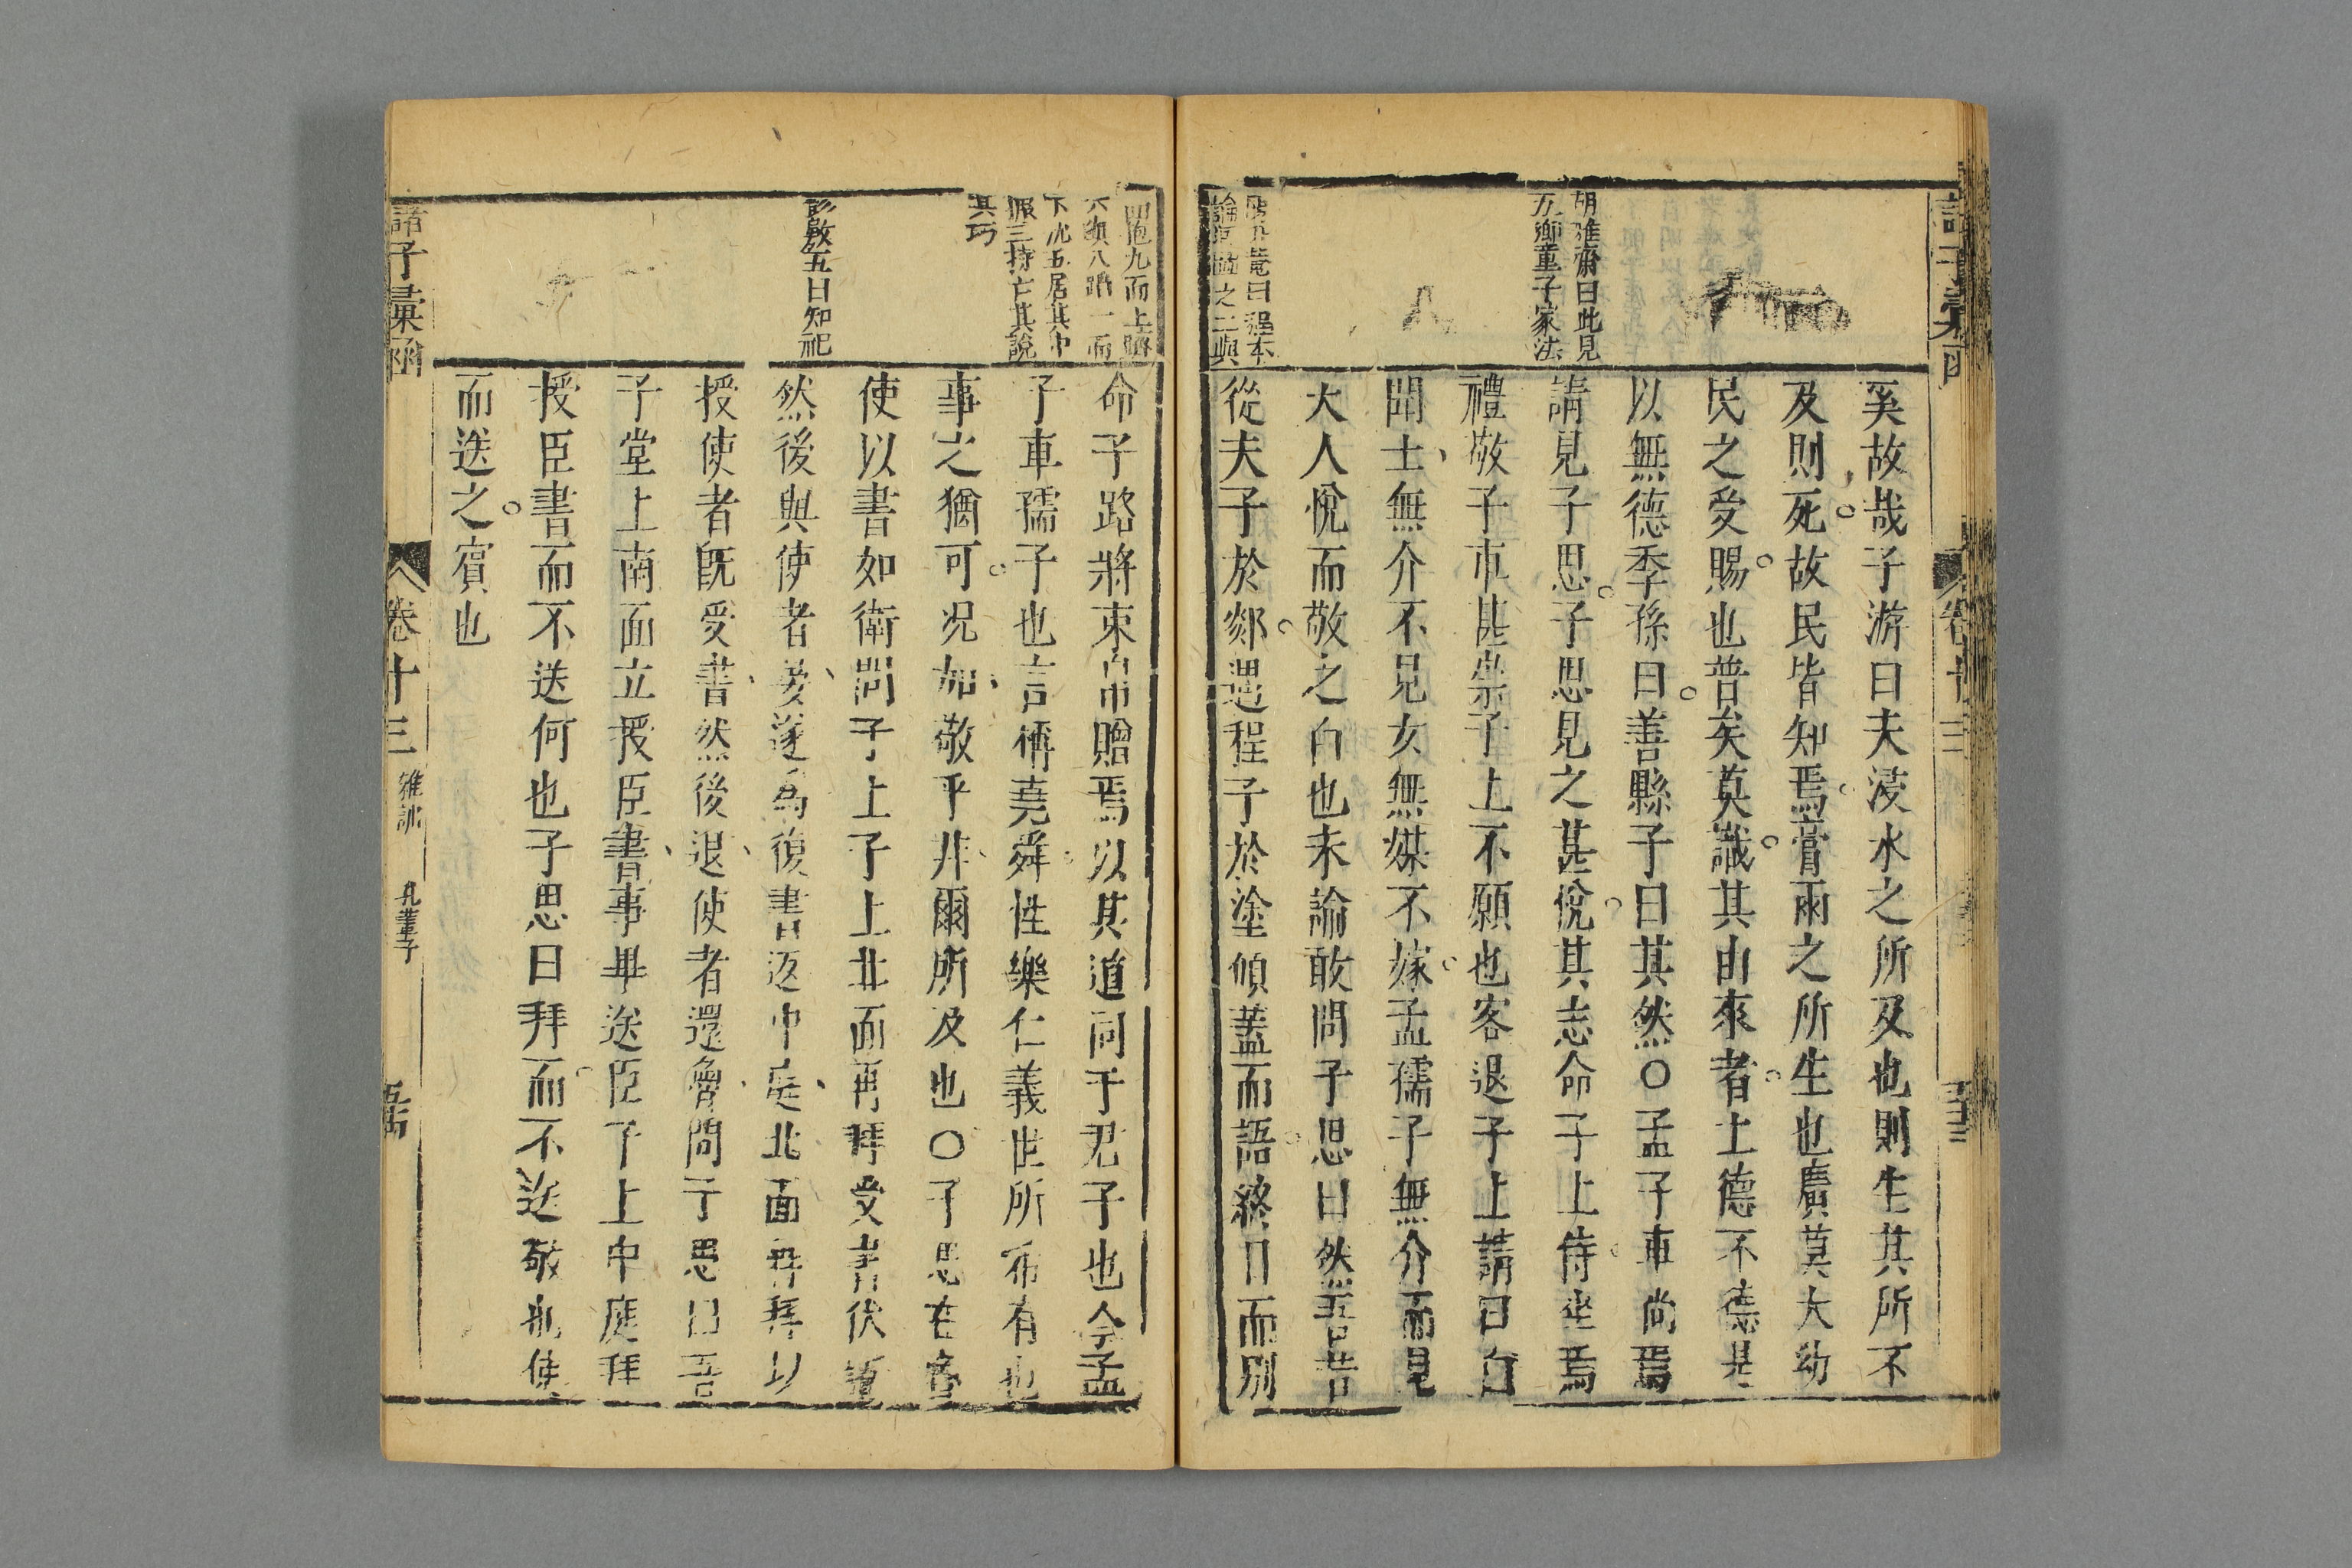 胡雅齋曰此見
五鄉童子家法
奚故哉子游曰夫浸水之所及也則生其所不
及則死故民皆知焉膏雨之所生也廣莫大幼
民之受賜也普矣莫識其由來者上德不德是
以無德季孫曰善縣子曰其然○孟子車尚焉
請見子思子思見之甚悅其志命子上侍坐焉
禮敬子車甚崇子上不願也客退子上請曰白
聞士無介不見女無媒不嫁孟孺子無介而見
大人悅而敬之白也未諭敢問子思曰然吾昔
從夫子於郯遇程子於塗傾蓋而語終日而別
命子路將束帛贈焉以其道同于君子也今孟
子車孺子也言稱堯舜性樂仁義世所希有也
事之猶可況加敬乎非爾所及也○子思在魯
使以書如衛問子上子上北面再拜受書伏讀
然後與使者宴遂為復書返中庭北面再拜以
授使者既受書然後退使者還魯問子思曰吾
子堂上南面立授臣書事畢送臣子上中庭拜
授臣書而不送何也子思曰拜而不送敬也使
而送之賓也
諸子彙函
卷十三
雜訓
孔叢子